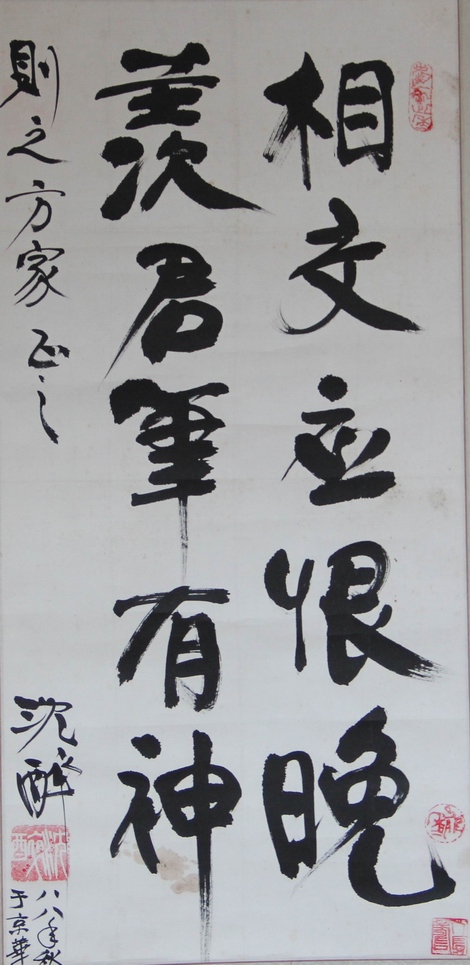 相交应恨晚
羡君筆有神
则之方家正之
沈醉
八八年秋
于京華